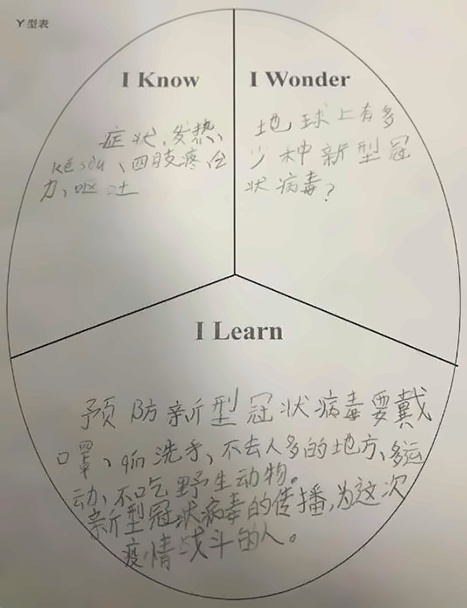 Y型表
I Know
症状,发热、
késòu、四肢疼、全
力、呕吐
I Wonder
地球上有多
少种新型冠
状病毒?
I Learn
预防新型冠状病毒要戴
口罩、qín洗手、不去人多的地方、多运
动、不吃野生动物。
新型冠状病毒的传播,为这次
疫情战斗的人。